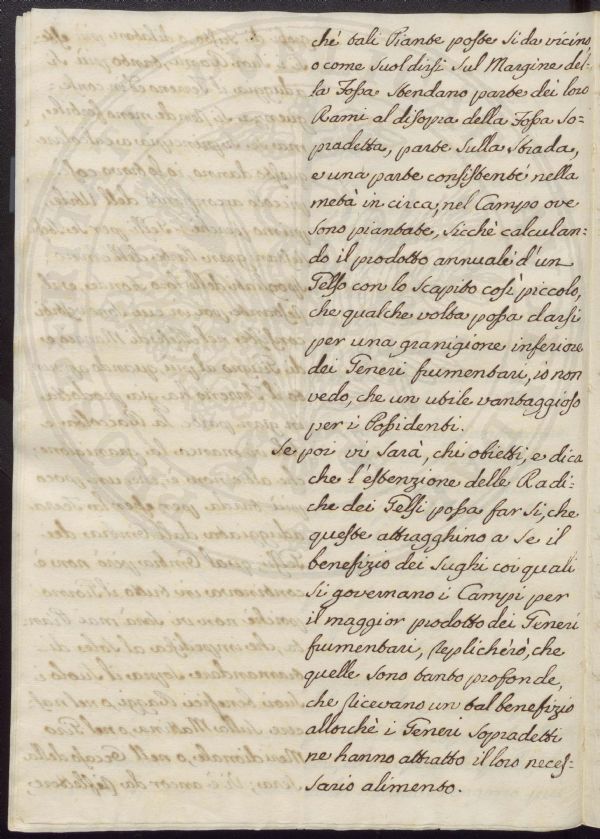 chè tali Piante poste si da vicino,
o come suol dirsi sul Margine del-
la Fossa stendano parte dei loro
Rami al disopra della Fossa so-
pradetta, parte sulla strada,
e una parte consistente nella
metà in circa, nel Campo ove
sono piantate, sicchè calculan-
do il prodotto annuale d'un
Gelso con lo scapito così piccolo,
che qualche volta possa darsi
per una granigione inferiore
dei Generi frumentari, io non
vedo, che un utile vantaggioso
per i Possidenti.
Se poi vi sarà, chi obietti, e dica
che l'estenzione delle Radi-
che dei Gelsi possa far si, che
queste attragghino a se il
benefizio dei sughi coi quali
si governano i Campi per
il maggior prodotto dei Generi
frumentari, replicherò, che
quelle sono tanto profonde,
che ricevano un tal benefizio
allorchè i Generi sopradetti
ne hanno attratto il loro neces-
sario alimento.